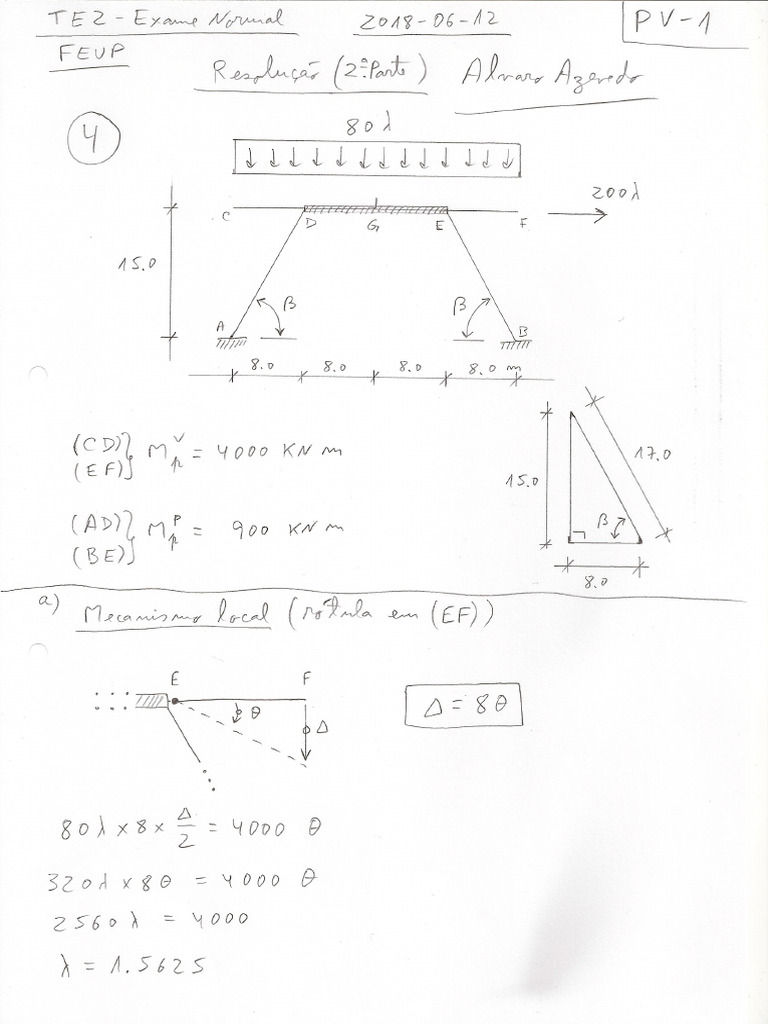 TE2 - Exame Normal 2018-06-12 PV-1
FEUP
Resolução (2ª Parte) Alvaro Azevedo
4
80λ
200λ
C D G E F
15.0
β β
A B
8.0 8.0 8.0 8.0 m
(CD)} Mpᵛ = 4000 KN m
(EF)}
(AD)} Mpᴾ = 900 KN m
(BE)}
15.0 17.0
β
8.0
a) Mecanismo local (rótula em (EF))
E F
θ Δ
Δ = 8θ
80λ × 8 × Δ/2 = 4000 θ
320λ × 8θ = 4000 θ
2560λ = 4000
λ = 1.5625